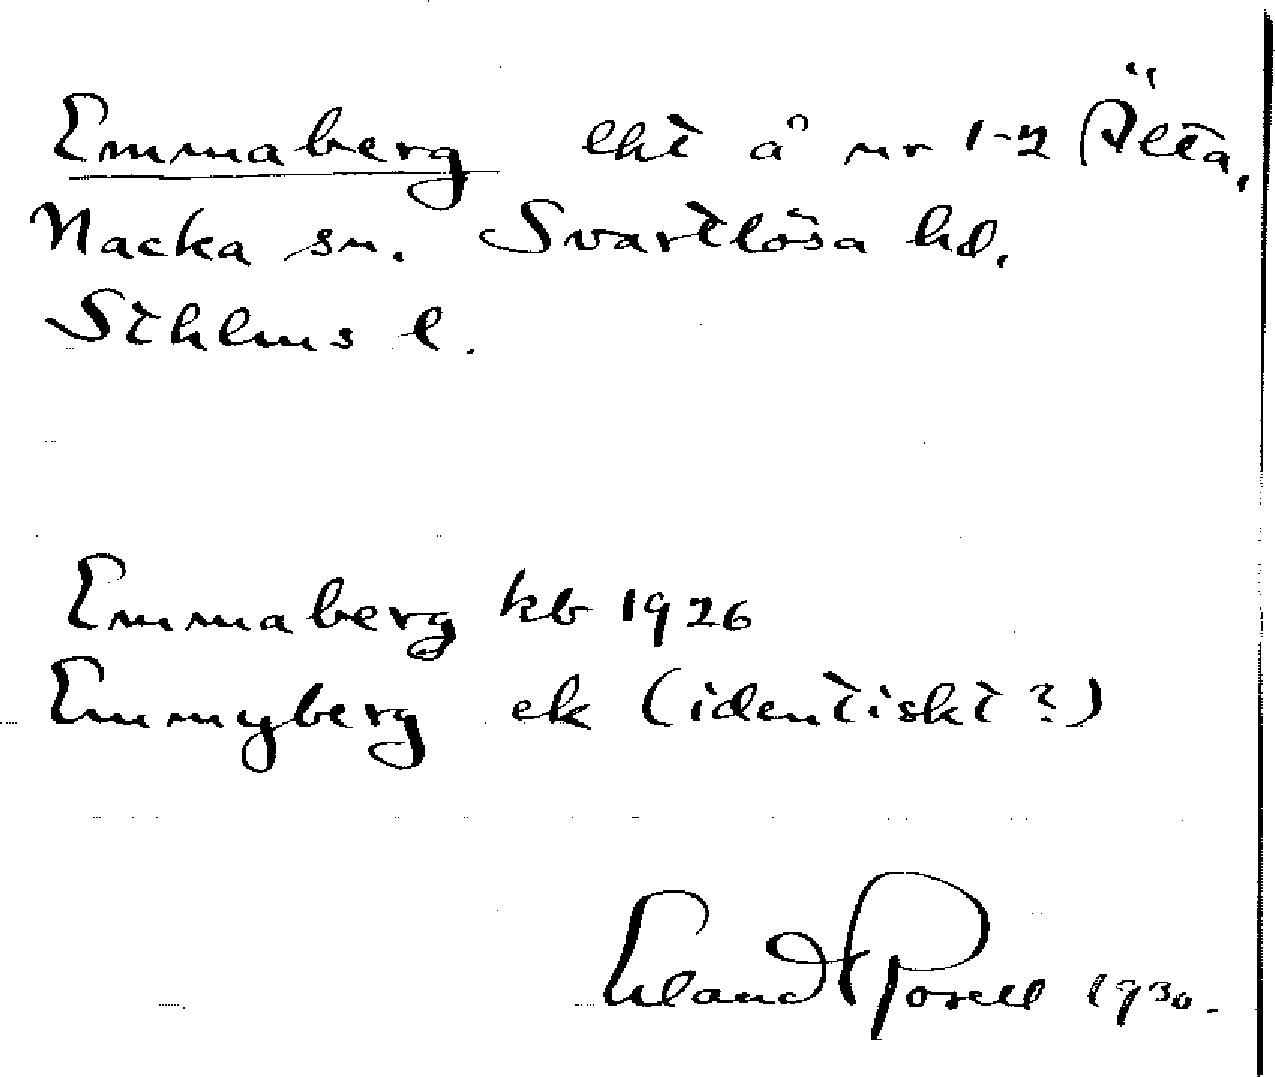 Emmaberg lht å nr 1-2 Älta,
Nacka sn. Svartlösa hd,
Sthlms l.
Emmaberg kb 1926
Emmyberg ek (identiskt?)
Erland Rosell 1930.